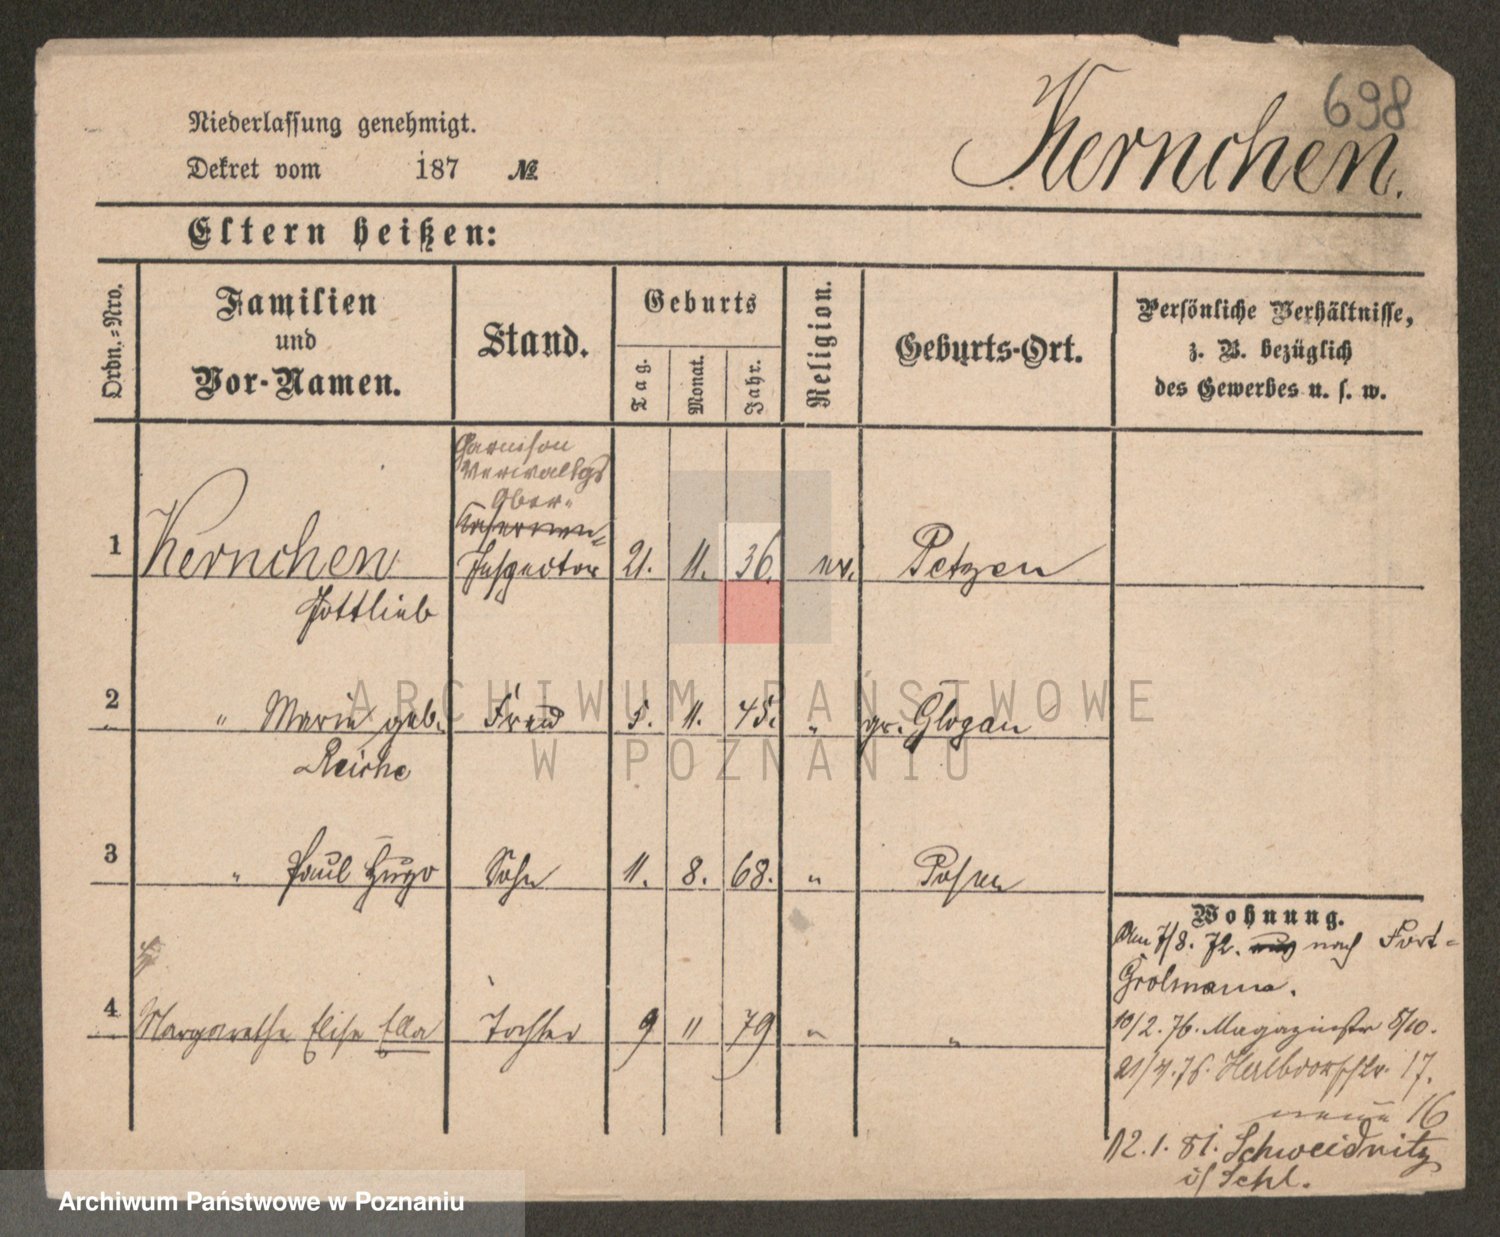 698
Kernchen.
Niederlassung genehmigt.
Dekret vom 187 №
Eltern heißen:
Ordn.-Nro.
Familien
und
Vor-Namen.
Stand.
Geburts
Tag.
Monat.
Jahr.
Religion.
Geburts-Ort.
Persönliche Verhältnisse,
z. B. bezüglich
des Gewerbes u. s. w.
Garnison
Verwaltgs
Ober-
Kasernen-
1 Kernchen Inspector 21. 11. 36. ev. Petzen
Gottlieb
2 " Marie geb. Frau 5. 11. 45. " gr. Glogau
Reiche
3 " Paul Hugo Sohn 11. 8. 68. " Posen
4 Margarethe Elise Ella Tochter 9 11 79 " "
Wohnung.
Am 7/8. 72. nach Fort-
Grolmann.
10/2. 76. Magazinstr 8/10.
21/4. 76. Halbdorfstr. 17.
neue 16
12. 1. 81. Schweidnitz
i/ Schl.
ARCHIWUM PAŃSTWOWE
W POZNANIU
Archiwum Państwowe w Poznaniu